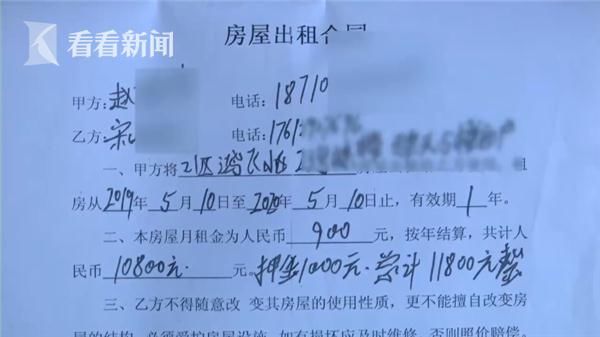 看看新闻
房屋出租合同
甲方:赵 电话:18710
乙方:宋 电话:1761
一、甲方将 鸿飞 租
房从2019年5月10日至2020年5月10日止，有效期1年。
二、本房屋月租金为人民币900元，按年结算，共计人
民币10800元.元。押金1000元.总计11800元整
三、乙方不得随意改 变其房屋的使用性质，更不能擅自改变房
屋的结构，必须爱护房屋设施，如有损坏应及时维修，否则照价赔偿。